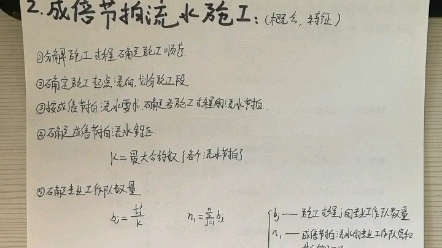 2.成倍节拍流水施工：(概念、特征)
①分解施工过程，确定施工顺序
②确定施工起点流向，划分施工段
③按成倍节拍流水要求，确定各施工过程的流水节拍
④确定成倍节拍流水步距
K=最大公约数{各个流水节拍}
⑤确定专业工作队数量
bj = tj/K n1=∑bj bj——施工过程j的专业工作队数量
n1——成倍节拍流水的专业工作队总和